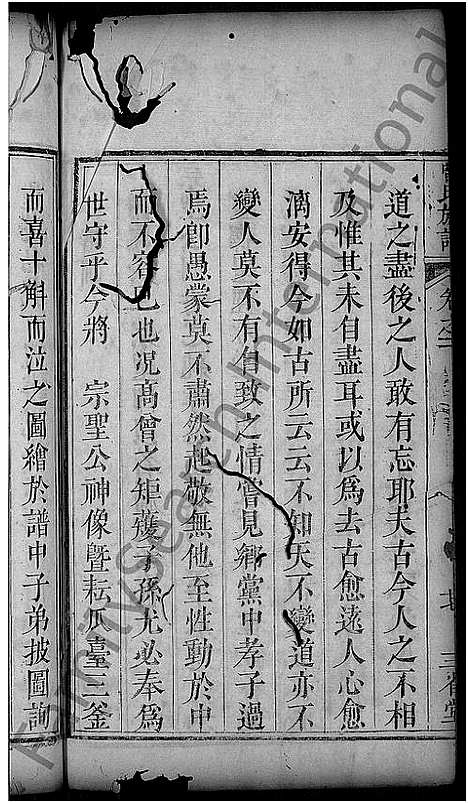 道之盡後之人敢有忘耶夫古今人之不相
及惟其未自盡耳或以爲去古愈遠人心愈
漓安得今如古所云云不知天不變道亦不
變人莫不有自致之情嘗見鄉黨中孝子過
焉卽愚蒙莫不肅然起敬無他至性動於中
而不容已也况高曾之矩矱子孫尤必奉爲
世守乎今將 宗聖公神像曁耘瓜臺三釜
而喜十斛而泣之圖繪於譜中子弟披圖詢
氏族譜
三省堂
FamilySearch International